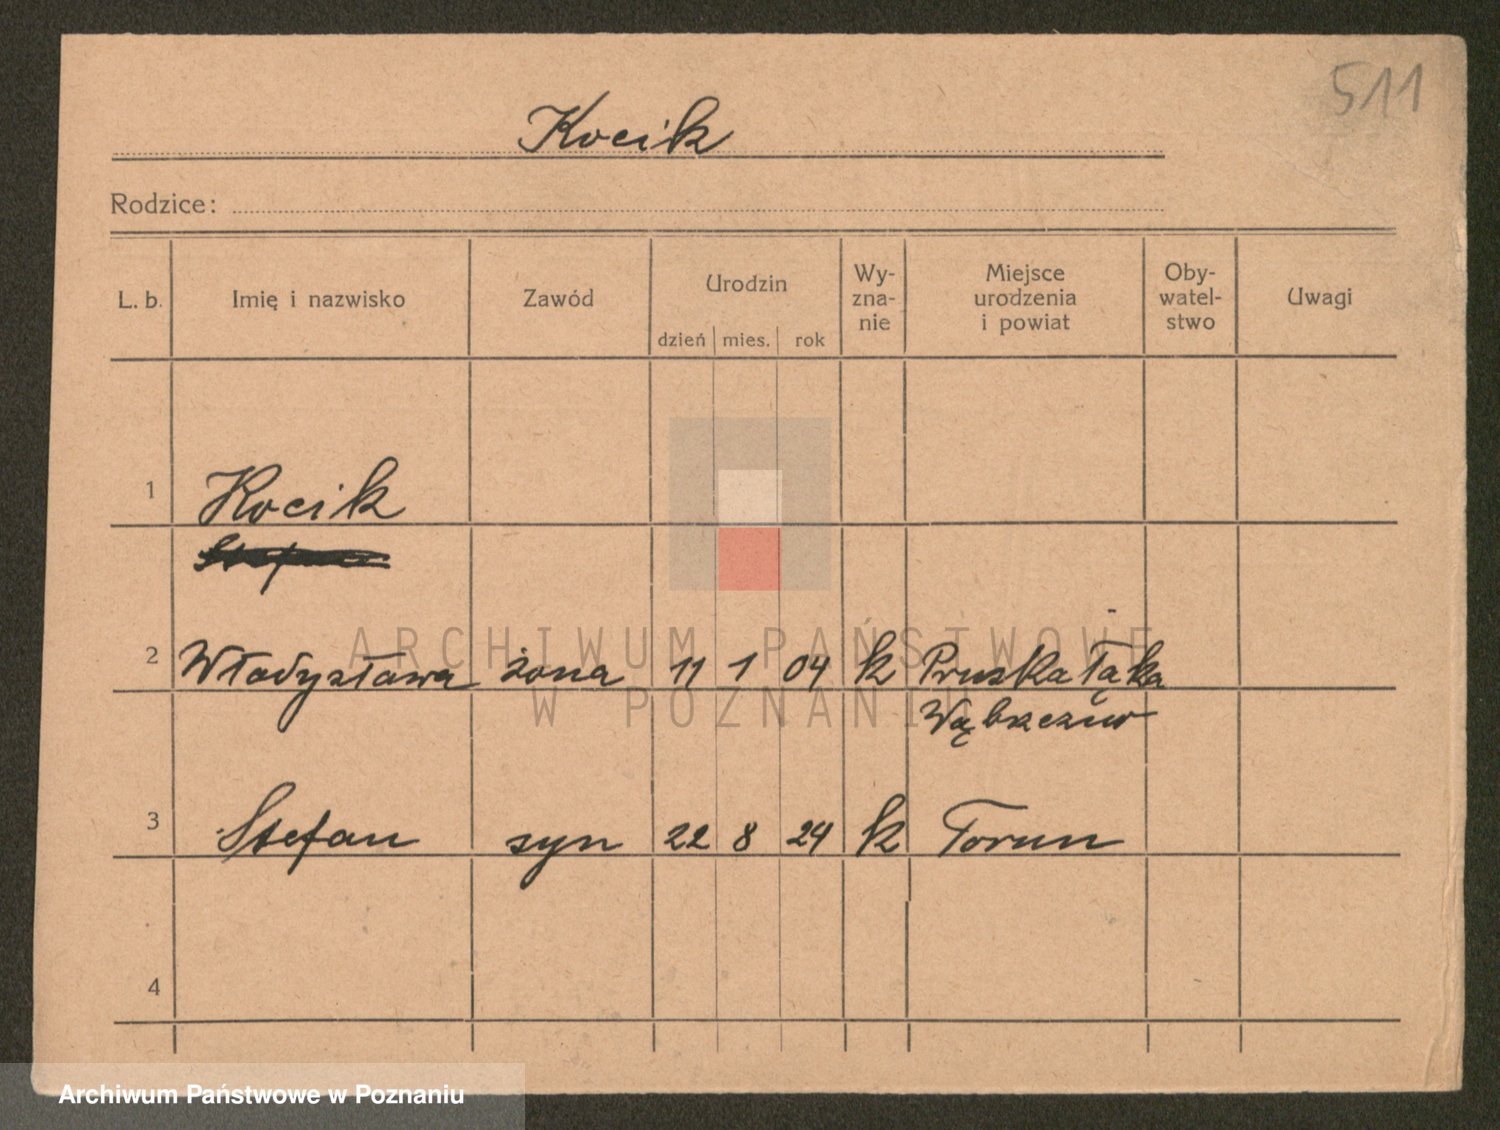 511
Kocik
Rodzice:
L. b. Imię i nazwisko Zawód Urodzin Wy-zna-nie Miejsce urodzenia i powiat Oby-watel-stwo Uwagi
dzień mies. rok
1 Kocik
2 Władysława żona 11 1 04 k Pruska Łąka
Wąbrzeźno
3 Stefan syn 22 8 24 k Torun
4
ARCHIWUM PAŃSTWOWE
W POZNANIU
Archiwum Państwowe w Poznaniu